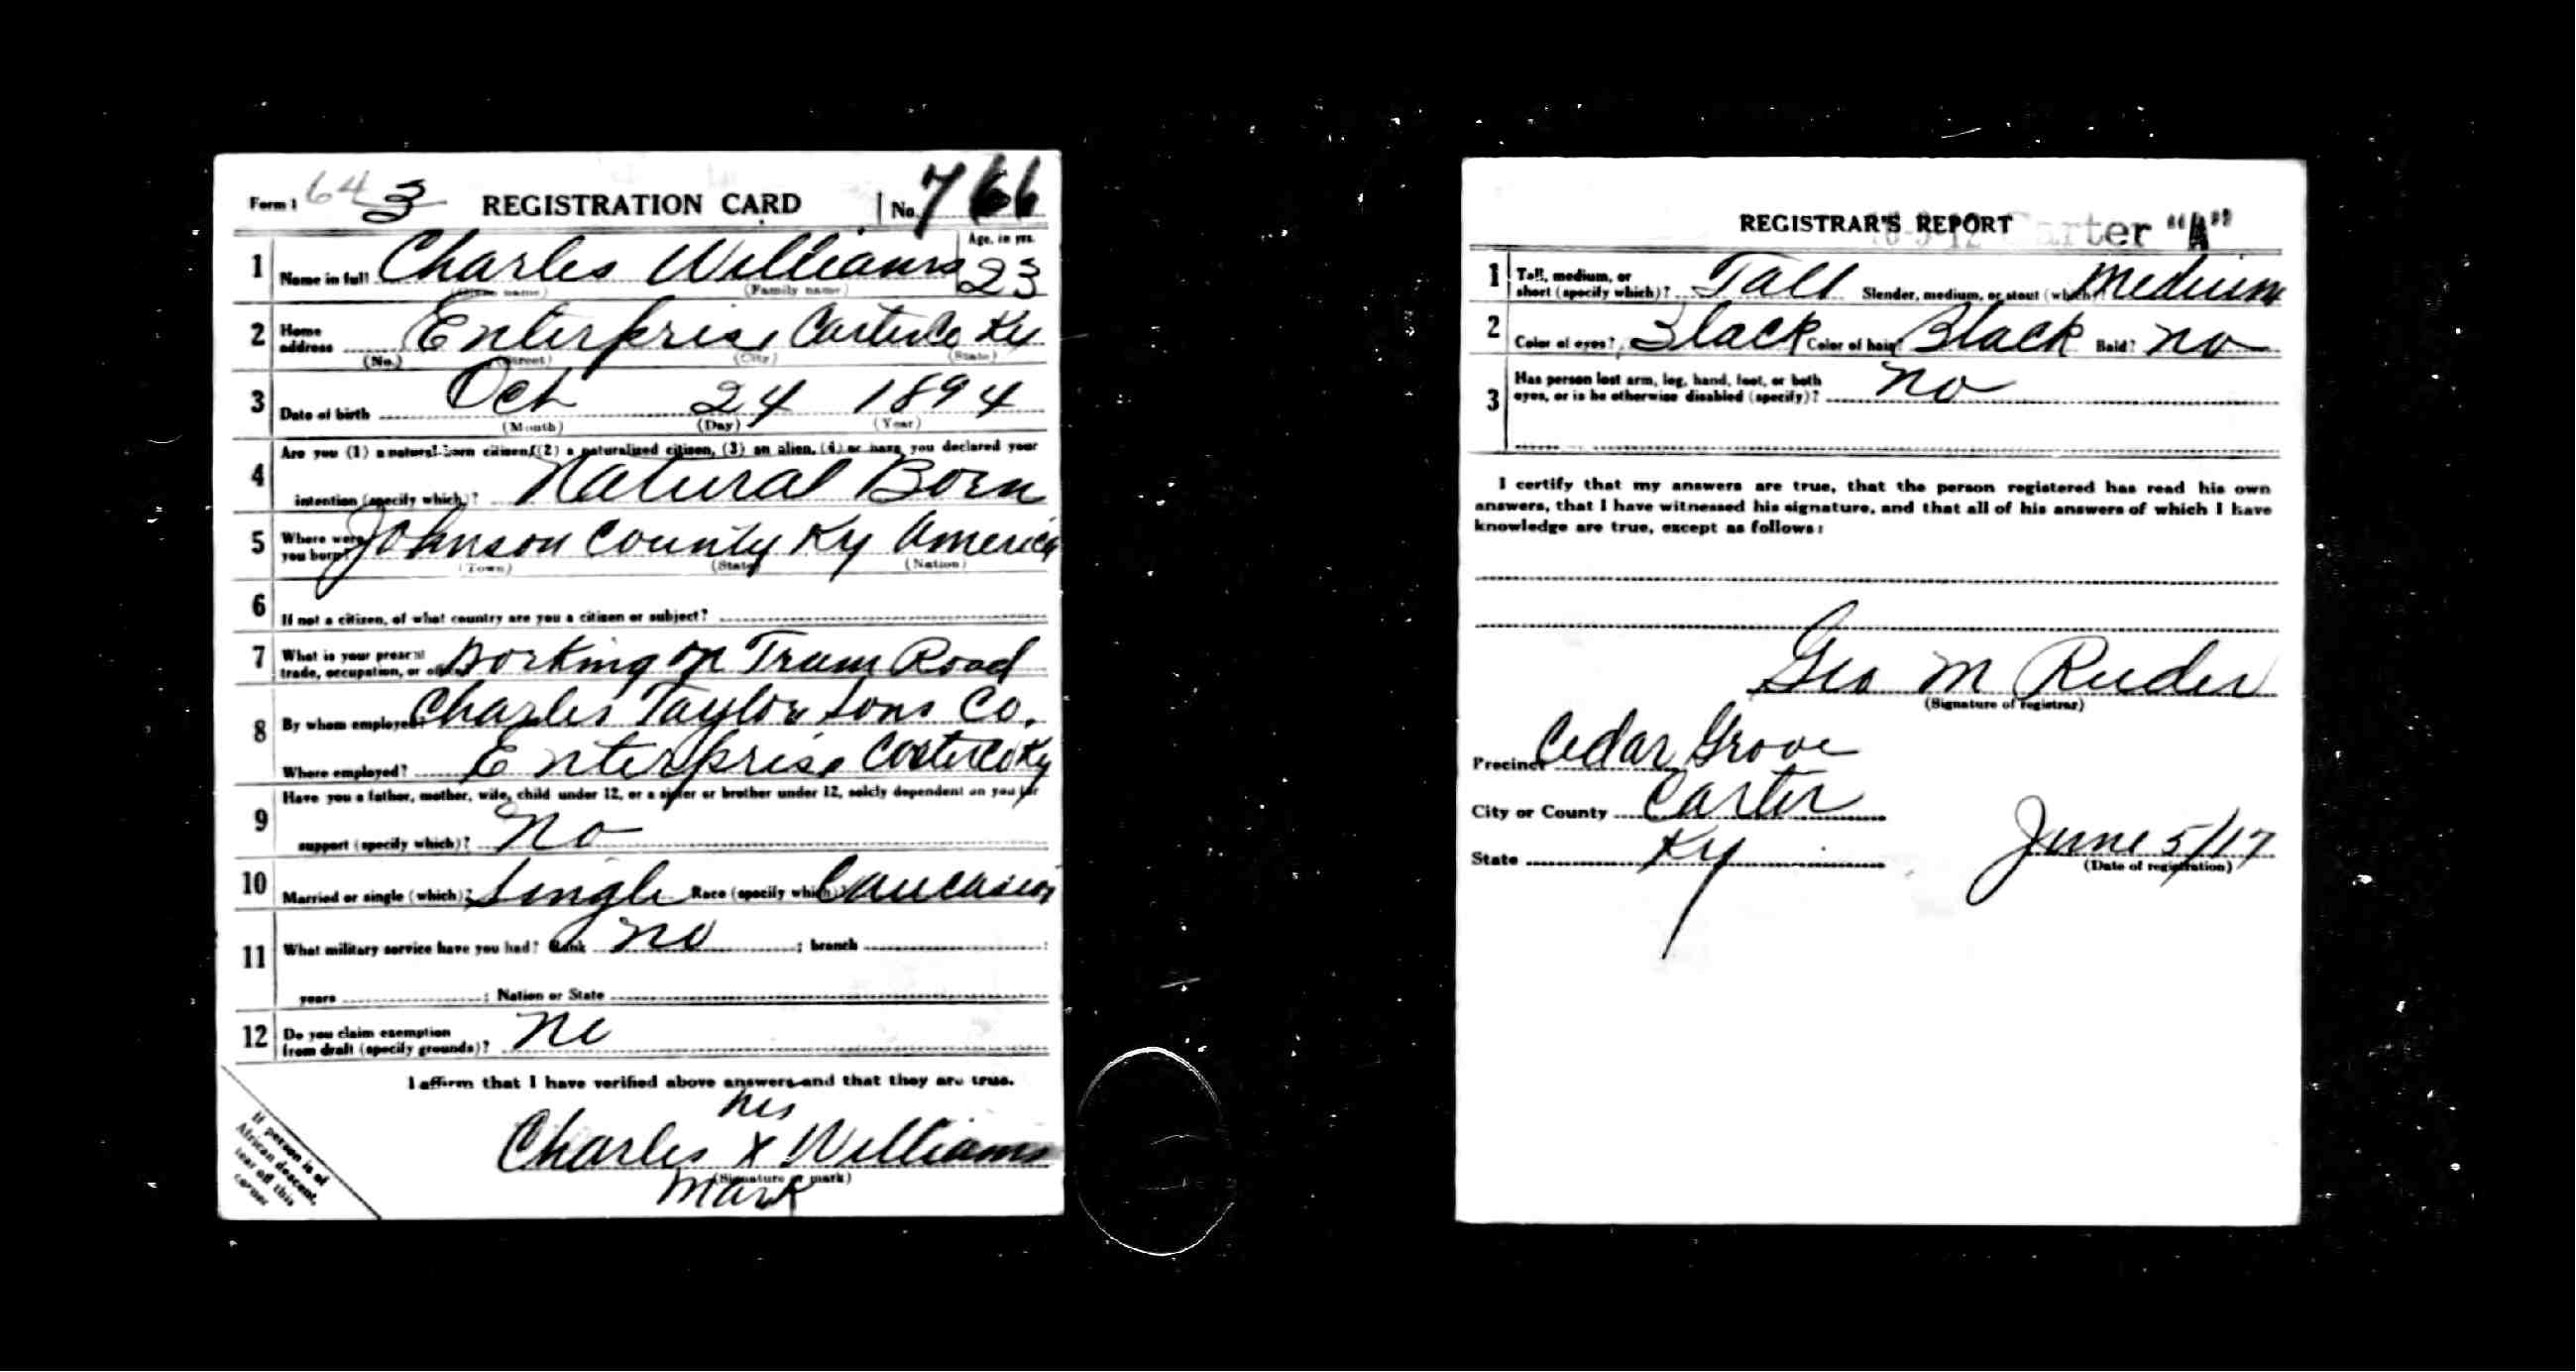 Form 1 643 REGISTRATION CARD No. 766
1 Name in full Charles Williams Age, in yrs. 23
(Given name) (Family name)
2 Home address Enterprise Carter Co Ky
(No.) (Street) (City) (State)
3 Date of birth Oct 24 1894
(Month) (Day) (Year)
4 Are you (1) a natural-born citizen, (2) a naturalized citizen, (3) an alien, (4) or have you declared your
intention (specify which)? Natural Born
5 Where were you born? Johnson County Ky America
(Town) (State) (Nation)
6 If not a citizen, of what country are you a citizen or subject?
7 What is your present trade, occupation, or office? Working on Tram Road
8 By whom employed? Charles Taylor Sons Co.
Where employed? Enterprise Carter Co Ky
9 Have you a father, mother, wife, child under 12, or a sister or brother under 12, solely dependent on you for
support (specify which)? No
10 Married or single (which)? Single Race (specify which)? Caucasion
11 What military service have you had? Rank no ; branch ;
years ; Nation or State
12 Do you claim exemption
from draft (specify grounds)? No
I affirm that I have verified above answers and that they are true.
his
Charles x Williams
(Signature or mark)
mark
If person is of
African descent,
tear off this
corner
REGISTRAR'S REPORT Carter "A"
1 Tall, medium, or short (specify which)? Tall Slender, medium, or stout (which)? Medium
2 Color of eyes? Black Color of hair? Black Bald? no
3 Has person lost arm, leg, hand, foot, or both
eyes, or is he otherwise disabled (specify)? no
I certify that my answers are true, that the person registered has read his own
answers, that I have witnessed his signature, and that all of his answers of which I have
knowledge are true, except as follows:
Geo M Ruder
(Signature of registrar)
Precinct Cedar Grove
City or County Carter
State Ky June 5/17
(Date of registration)